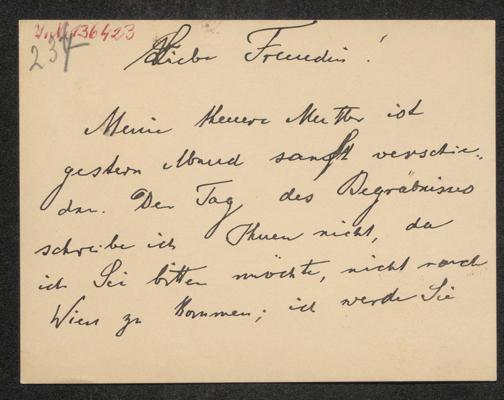 I.N. 136423
234
Liebe Freundin!
Meine theuere Mutter ist
gestern Abend sanft verschie-
den. Den Tag des Begräbnisses
schreibe ich Ihnen nicht, da
ich Sie bitten möchte, nicht nach
Wien zu kommen; ich werde Sie